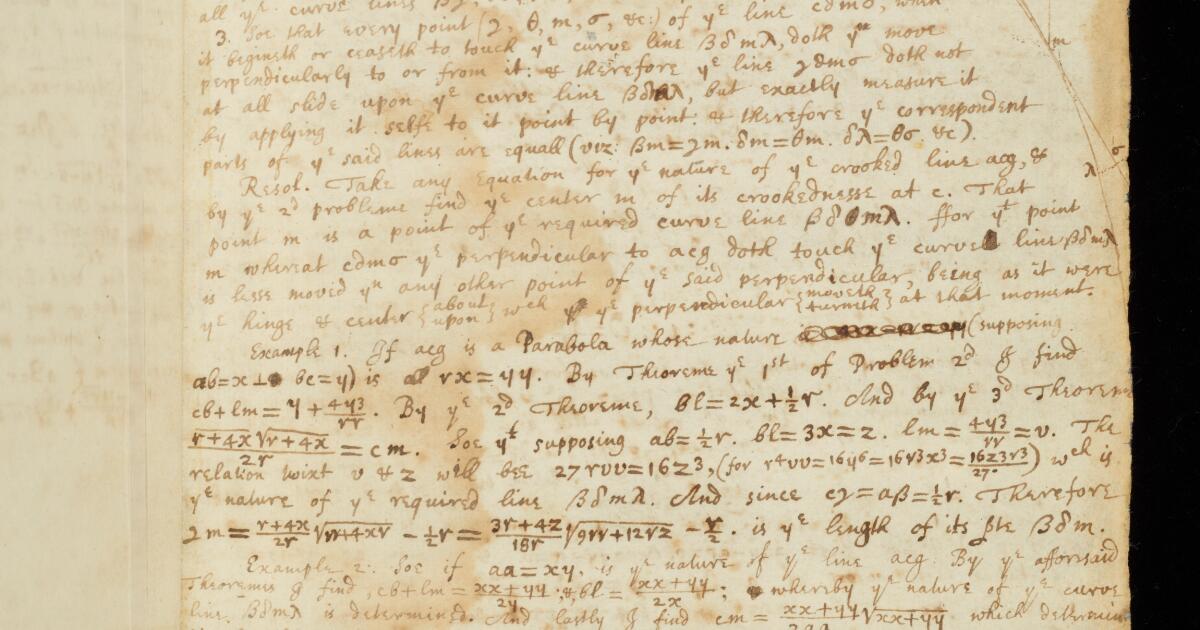 all yᵉ curve lines
3. Soe that every point (γ, θ, m, σ, &c:) of yᵉ line cdmσ, when
it begineth or ceaseth to touch yᵉ curve line βδmλ, doth yⁿ move
perpendicularly to or from it: & therefore yᵉ line γθmσ doth not
at all slide upon yᵉ curve line βδmλ, but exactly measure it
by applying it selfe to it point by point: & therefore yᵉ correspondent
parts of yᵉ said lines are equall (viz: βm=γm. δm=θm. δλ=θσ &c).
Resol. Take any Equation for yᵉ nature of yᵉ crooked line acg, &
by yᵉ 2ᵈ probleme find yᵉ center m of its crookednesse at c. That
point m is a point of yᵉ required curve line βδθmλ. ffor yᵗ point
m whereat cdmσ yᵉ perpendicular to acg doth touch yᵉ curve line βδmλ
is lesse moved yⁿ any other point of yᵉ said perpendicular, being as it were
yᵉ hinge & center {about upon} wᶜʰ yᵉ perpendicular {moveth turneth} at that moment.
Example 1. If acg is a Parabola whose nature (supposing
ab=x⊥ bc=y) is rx=yy. By Theoreme yᵉ 1ˢᵗ of Problem 2ᵈ I find
cb+lm=y+4y3/rr. By yᵉ 2ᵈ Theoreme, bl=2x+½r. And by yᵉ 3ᵈ Theorem
r+4x√r+4x/2r=cm. Soe yᵗ supposing ab=½r. bl=3x=z. lm=4y3/rr=v. The
relation twixt v & z will bee 27rvv=16z3, (for r4vv=16y6=16r3x3=16z3r3/27) wᶜʰ is
yᵉ nature of yᵉ required line βδmλ. And since cγ=aβ=½r. Therefore
γm=r+4x/2r√rr+4xr -½r=3r+4z/18r√9rr+12rz -r/2. is yᵉ length of its pte βδm.
Example 2: Soe if aa=xy, is yᵉ nature of yᵉ line acg. By yᵉ afforesaid
Theoremes I find, cb+lm=xx+yy/2y. & bl=xx+yy/2x; whereby yᵉ nature of yᵉ curve
line βδmλ is determined. And lastly I find cm=xx+yy√xx+yy/2aa which determin
m
σ
λ